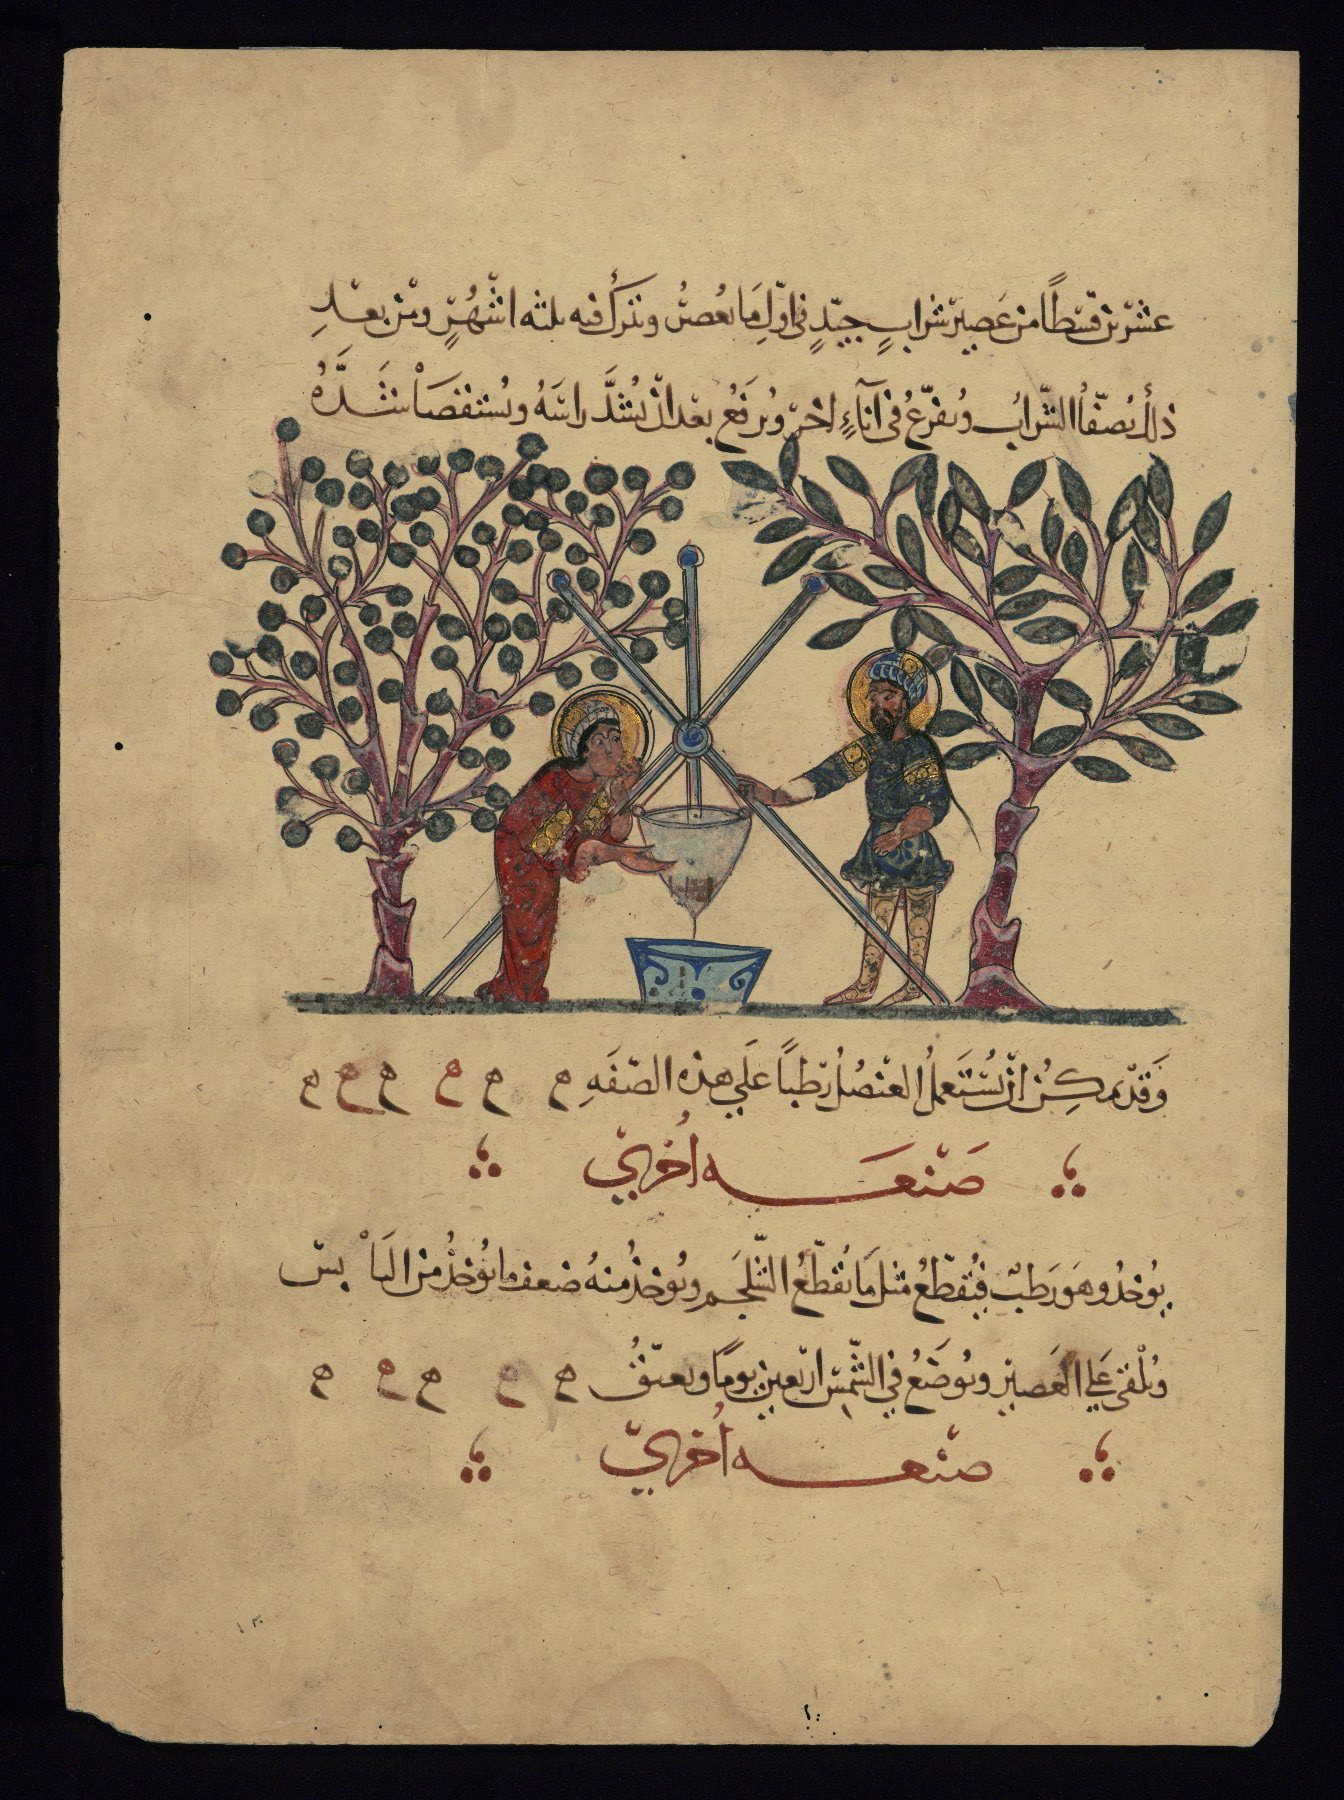 عشرين قسطًا من عَصِير شرابٍ جيّدٍ في اوّلِ مَا يُعصَرُ ويترَكُ فيه ثلثه اشْهُرٍ ومن بعدِ
ذلك يُصَفّاْ الشّرابُ ويُفرّغُ في آناءٍ اخر ويُرفَعُ بعد ان يُشدَّ راسَهُ ويُستقصَاْ شَدَّهُ
وَقَدْ يمكِنُ انْ يُسْتَعملُ العنصُلُ رَطبًا عَلي هذه الصّفَهِ ه ه ه ه ه ه
صَنْعَه اُخري
يُوخذُ وهَو رَطبٌ فيُقطّعُ مثل مَا يُقطّعُ الشّلجَم ويُوخذُ منهُ ضعف ما يُوخذُ من اليَاْبس
ويُلْقى عَلي العَصيرِ ويُوضَعُ في الشّمسْ اربَعين يومًا ويعتّقُ ه ه ه ه ه
صنْعه اُخري